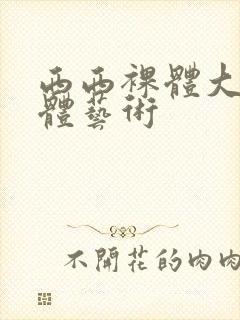 西西裸體大
體藝術
不開花的肉肉